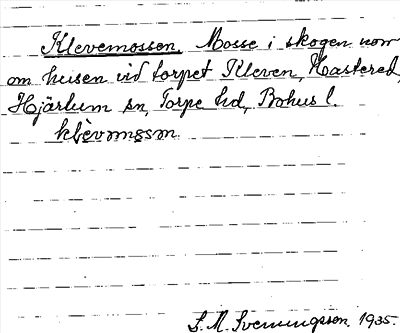 Klevemossen, Mosse i skogen norr
om husen vid torpet Kleven, Kastered,
Hjärtum sn, Torpe hd, Bohus l.
klèvɔmɔsɔn
S. M. Svenungsson 1935.